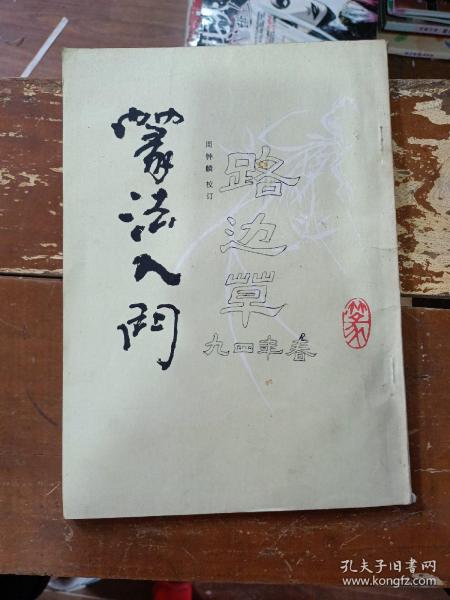 篆法入門
周钟麟 校订
路边草
九四年春
篆
孔夫子旧书网
www.kongfz.com